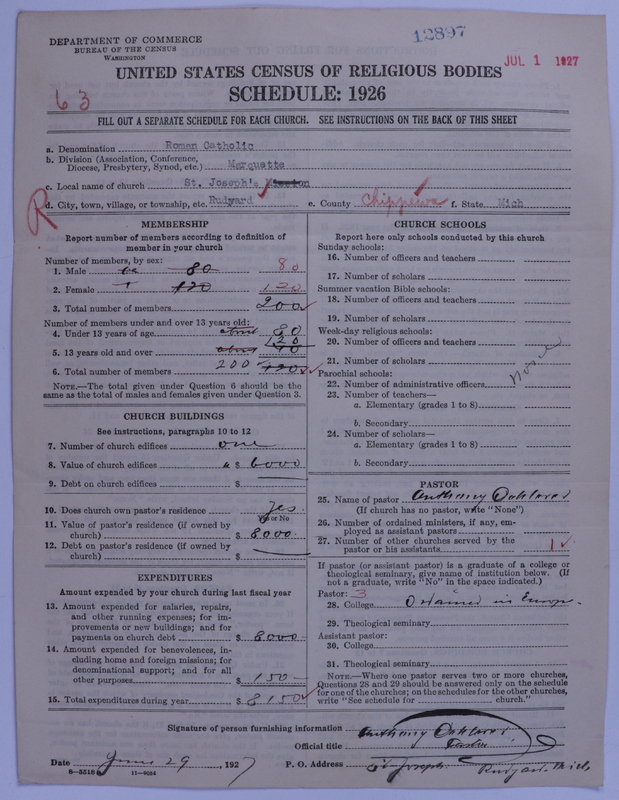 12897
DEPARTMENT OF COMMERCE
BUREAU OF THE CENSUS
WASHINGTON
JUL 1 1927
UNITED STATES CENSUS OF RELIGIOUS BODIES
SCHEDULE: 1926
63
FILL OUT A SEPARATE SCHEDULE FOR EACH CHURCH. SEE INSTRUCTIONS ON THE BACK OF THIS SHEET
a. Denomination Roman Catholic
b. Division (Association, Conference, Diocese, Presbytery, Synod, etc.) Marquette
c. Local name of church St. Joseph's Mission
R
d. City, town, village, or township, etc. Rudyard e. County Chippewa f. State Mich
MEMBERSHIP
Report number of members according to definition of
member in your church
Number of members, by sex:
1. Male 80 80
2. Female 120 120
3. Total number of members 200
Number of members under and over 13 years old:
4. Under 13 years of age about 80
120
5. 13 years old and over about
6. Total number of members 200
NOTE.—The total given under Question 6 should be the
same as the total of males and females given under Question 3.
CHURCH BUILDINGS
See instructions, paragraphs 10 to 12
7. Number of church edifices one
8. Value of church edifices $ 6000
9. Debt on church edifices $
10. Does church own pastor's residence Yes
Yes or No
11. Value of pastor's residence (if owned by
church) $ 8000
12. Debt on pastor's residence (if owned by
church) $
EXPENDITURES
Amount expended by your church during last fiscal year
13. Amount expended for salaries, repairs,
and other running expenses; for im-
provements or new buildings; and for
payments on church debt $ 8000
14. Amount expended for benevolences, in-
cluding home and foreign missions; for
denominational support; and for all
other purposes $ 150
15. Total expenditures during year $ 8150
CHURCH SCHOOLS
Report here only schools conducted by this church
Sunday schools:
16. Number of officers and teachers
17. Number of scholars
Summer vacation Bible schools:
18. Number of officers and teachers
19. Number of scholars
Week-day religious schools:
20. Number of officers and teachers
21. Number of scholars
Parochial schools: None
22. Number of administrative officers
23. Number of teachers—
a. Elementary (grades 1 to 8)
b. Secondary
24. Number of scholars—
a. Elementary (grades 1 to 8)
b. Secondary
PASTOR
25. Name of pastor Anthony
(If church has no pastor, write "None")
26. Number of ordained ministers, if any, em-
ployed as assistant pastors
27. Number of other churches served by the
pastor or his assistants 1
If pastor (or assistant pastor) is a graduate of a college or
theological seminary, give name of institution below. (If
not a graduate, write "No" in the space indicated.)
Pastor: 3
28. College Ordained in Europe
29. Theological seminary
Assistant pastor:
30. College
31. Theological seminary
NOTE.—Where one pastor serves two or more churches,
Questions 28 and 29 should be answered only on the schedule
for one of the churches; on the schedules for the other churches,
write "See schedule for church."
Signature of person furnishing information Anthony
Official title Pastor
Date June 29, 1927 P. O. Address St. Joseph Rudyard Mich
8-5518 11-9034